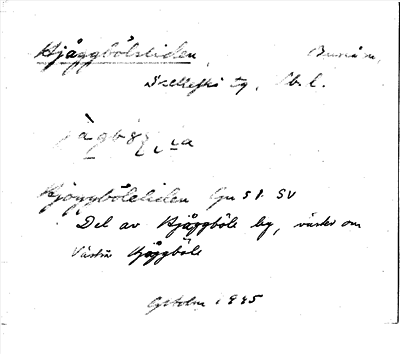 Hjåggbölsliden, Bureå sn,
Skellefteå tg, Vb. l.
Hjåggböleliden Gm 5 P. SV
Del av Hjåggböle by, väster om
Västra Hjåggböle
G Holm 1945